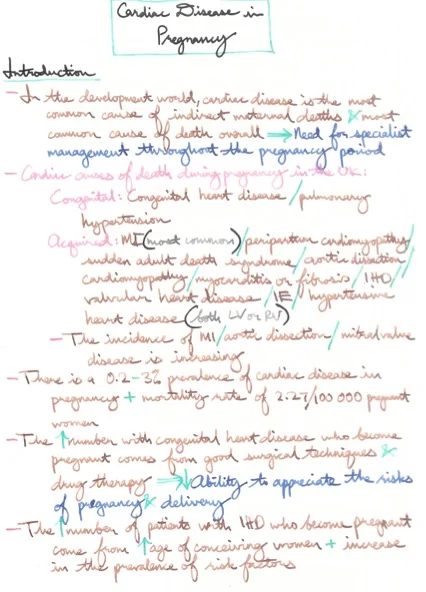 Cardiac Disease in
Pregnancy
Introduction
- In the development world, cardiac disease is the most
common cause of indirect maternal deaths & most
common cause of death overall ⟹ Need for specialist
management throughout the pregnancy period
- Cardiac causes of death during pregnancy in the UK:
Congenital: Congenital heart disease / pulmonary
hypertension
Acquired: MI (most common) / peripartum cardiomyopathy /
sudden adult death syndrome / aortic dissection /
cardiomyopathy / myocarditis or fibrosis / IHD /
valvular heart disease / IE / hypertensive
heart disease (both LV or RV)
- The incidence of MI / aortic dissection / mitral valve
disease is increasing
- There is a 0.2-3% prevalence of cardiac disease in
pregnancy + mortality rate of 2.27/100 000 pregnant
women
- The ↑ number with congenital heart disease who become
pregnant comes from good surgical techniques &
drug therapy ⟹ ↓ Ability to appreciate the risks
of pregnancy & delivery
- The ↑ number of patients with IHD who become pregnant
come from ↑ age of conceiving women + increase
in the prevalence of risk factors